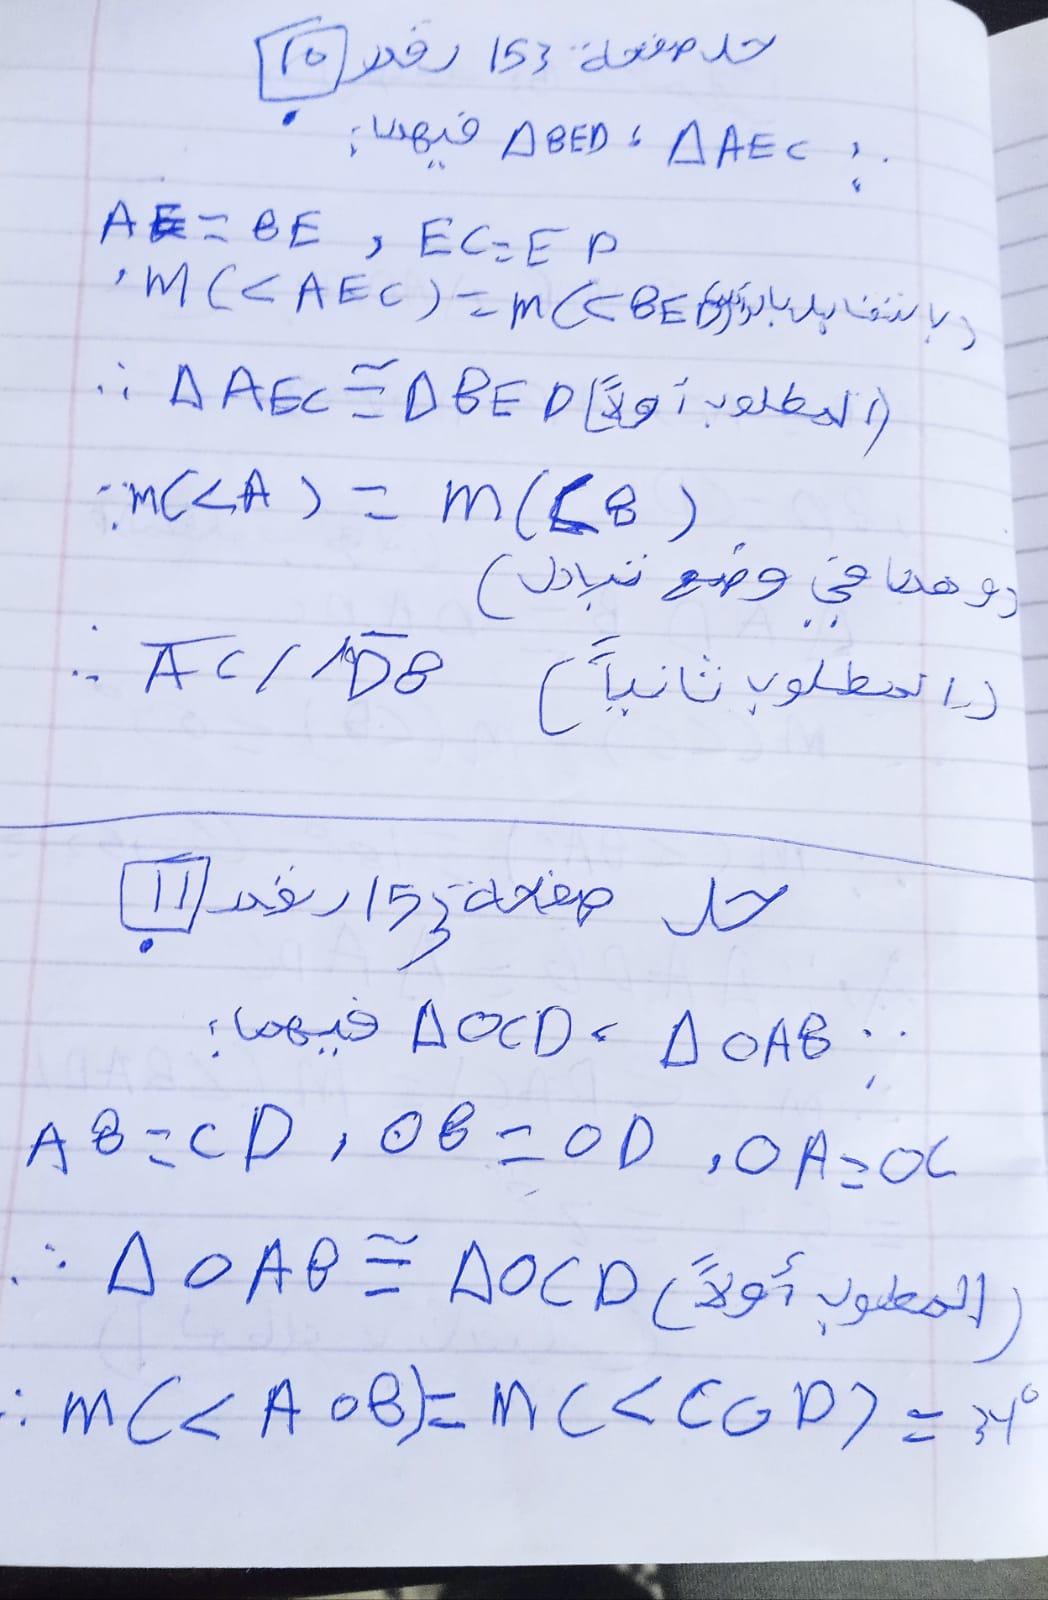 حل صفحة 153 رقم 10
∵ ΔAEC ، ΔBED فيهما:
AE = BE , EC = ED
, m(<AEC) = m(<BED) (بالتقابل بالرأس)
∴ ΔAEC ≅ ΔBED (المطلوب أولاً)
∴ m(<A) = m(<B)
(وهما في وضع تبادل)
∴ AC // DB (المطلوب ثانياً)
حل صفحة 153 رقم 11
∵ ΔOAB ، ΔOCD فيهما:
AB = CD , OB = OD , OA = OC
∴ ΔOAB ≅ ΔOCD (المطلوب أولاً)
∴ m(<AOB) = m(<COD) = 34°